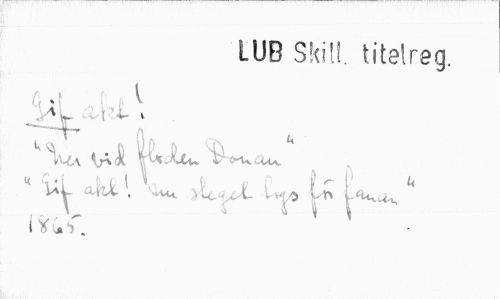 LUB Skill. titelreg.
Gif akt!
"Ner vid floden Donau"
"Gif akt! en slaget togs för fanan"
1865.